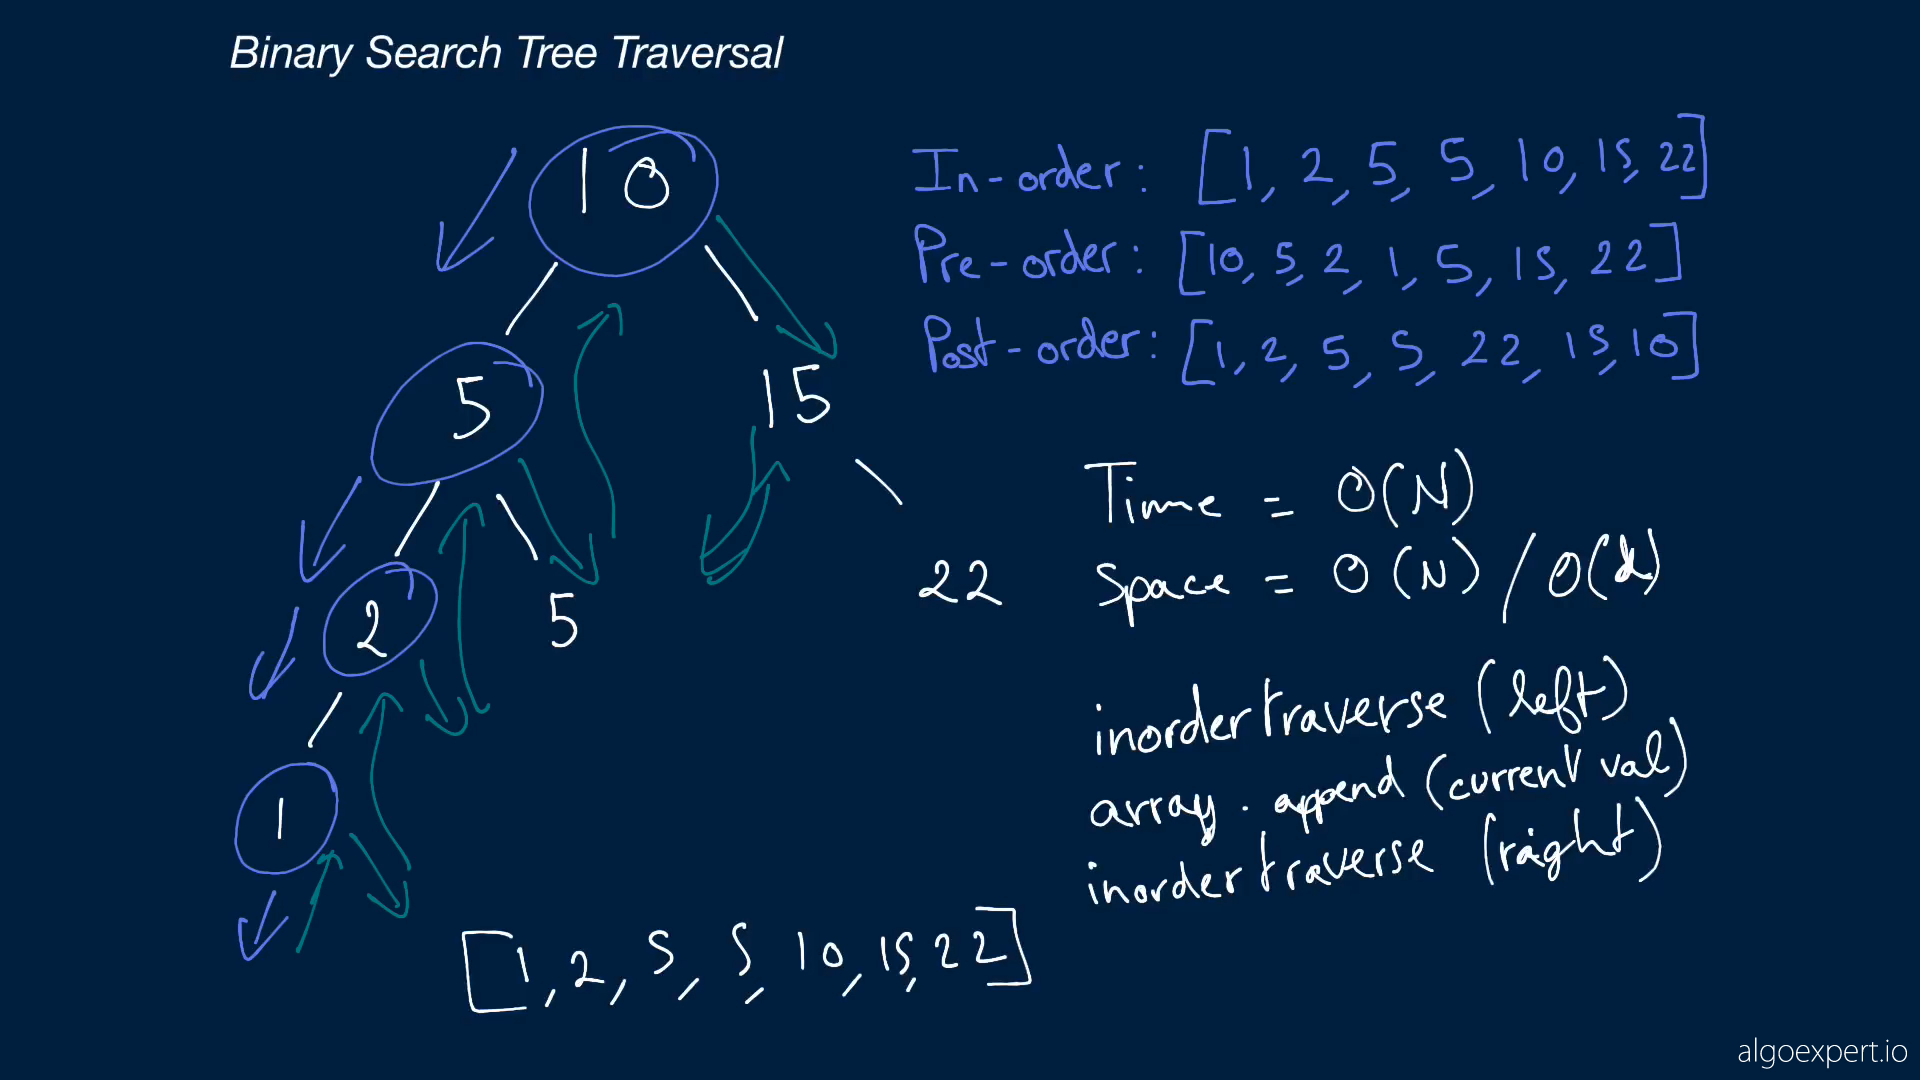 Binary Search Tree Traversal
10
5
15
2
5
22
1
[1, 2, 5, 5, 10, 15, 22]
In-order: [1, 2, 5, 5, 10, 15, 22]
Pre-order: [10, 5, 2, 1, 5, 15, 22]
Post-order: [1, 2, 5, 5, 22, 15, 10]
Time = O(N)
Space = O(N) / O(d)
inordertraverse (left)
array.append (current val)
inordertraverse (right)
algoexpert.io